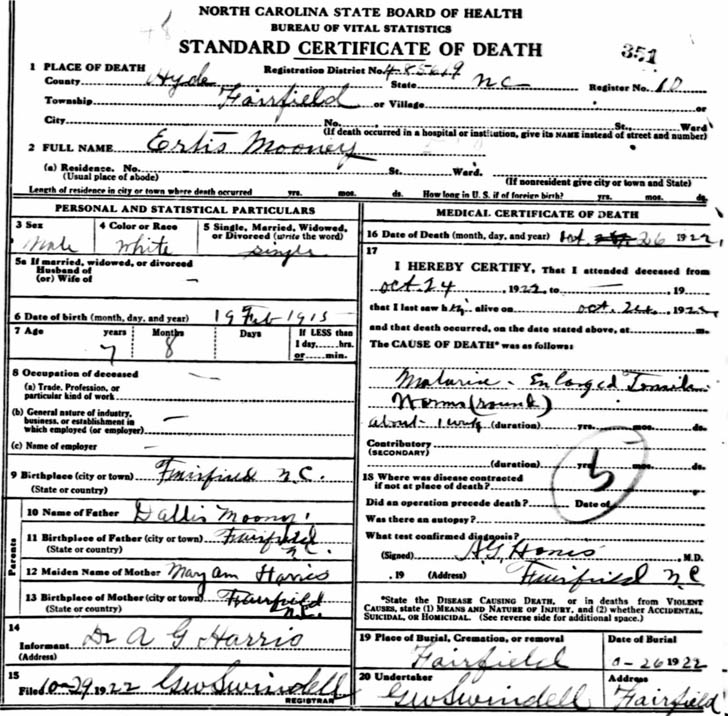 NORTH CAROLINA STATE BOARD OF HEALTH
BUREAU OF VITAL STATISTICS
STANDARD CERTIFICATE OF DEATH
351
1 PLACE OF DEATH Registration District No.
County Hyde State NC Register No. 10
Township Fairfield or Village
City No. St., Ward
(If death occurred in a hospital or institution, give its NAME instead of street and number)
2 FULL NAME Ertis Mooney
(a) Residence. No. St. Ward.
(Usual place of abode) (If nonresident give city or town and State)
Length of residence in city or town where death occurred yrs. mos. ds. How long in U.S. if of foreign birth? yrs. mos. ds.
PERSONAL AND STATISTICAL PARTICULARS
3 Sex 4 Color or Race 5 Single, Married, Widowed,
or Divorced (write the word)
Male White Single
5a If married, widowed, or divorced
Husband of
(or) Wife of —
6 Date of birth (month, day, and year) 19 Feb 1915
7 Age years Months Days If LESS than
1 day......hrs.
7 8 or......min.
8 Occupation of deceased —
(a) Trade, Profession, or
particular kind of work
(b) General nature of industry,
business, or establishment in
which employed (or employer) —
(c) Name of employer —
9 Birthplace (city or town) Fairfield N.C.
(State or country)
Parents
10 Name of Father Dallis Mooney
11 Birthplace of Father (city or town) Fairfield
(State or country) N.C.
12 Maiden Name of Mother Mary Ann Harris
13 Birthplace of Mother (city or town) Fairfield
(State or country) N.C.
14
Informant Dr A G Harris
(Address)
15
Filed 10-29 1922 GW Swindell
REGISTRAR
MEDICAL CERTIFICATE OF DEATH
16 Date of Death (month, day, and year) Oct 26 1922,
17
I HEREBY CERTIFY, That I attended deceased from
Oct 24, 1922 to — 19
that I last saw h alive on Oct. 24, 1922
and that death occurred, on the date stated above, at m.
The CAUSE OF DEATH* was as follows:
Malaria - Enlarged Tonsils
Worms (round)
about - 1 week (duration) yrs. mos. ds.
Contributory —
(SECONDARY)
(duration) yrs. mos. ds.
5
18 Where was disease contracted
if not at place of death?
Did an operation precede death? Date of
Was there an autopsy?
What test confirmed diagnosis?
(Signed) A.G. Harris M.D.
, 19 (Address) Fairfield N.C
*State the DISEASE CAUSING DEATH, or in deaths from VIOLENT
CAUSES, state (1) MEANS AND NATURE OF INJURY, and (2) whether ACCIDENTAL,
SUICIDAL, OR HOMICIDAL. (See reverse side for additional space.)
19 Place of Burial, Cremation, or removal Date of Burial
Fairfield 0-26 1922
20 Undertaker Address
GW Swindell Fairfield